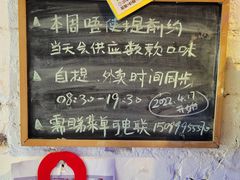 本周唔使提前约
当天会供应数款口味
自提、外卖时间同步
08:30-19:30
2022.4.17
需睇菜单可电联